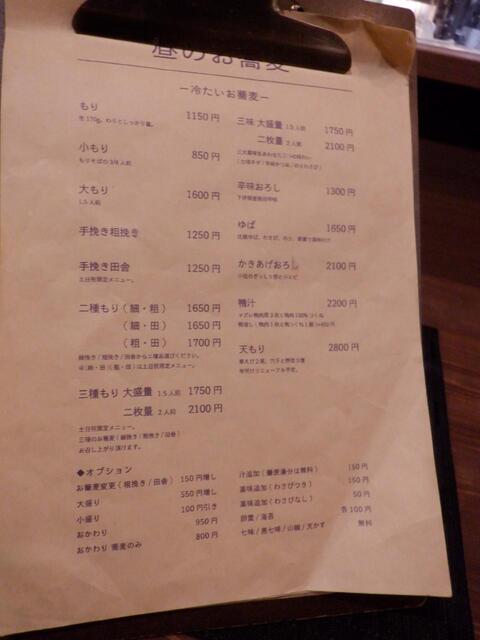 昼のお蕎麦
－冷たいお蕎麦－
もり 1150円
生170g。わりとしっかり量。
小もり 850円
もりそばの3/4人前
大もり 1600円
1.5人前
手挽き粗挽き 1250円
手挽き田舎 1250円
土日祝限定メニュー。
二種もり（細・粗） 1650円
（細・田） 1650円
（粗・田） 1700円
細挽き/粗挽き/田舎から二種お選びください。
※（細・田）（粗・田）は土日祝限定メニュー。
三種もり 大盛量 1.5人前 1750円
二枚量 2人前 2100円
土日祝限定メニュー。
三種のお蕎麦（細挽き/粗挽き/田舎）
お召し上がり頂けます。
三味 大盛量 1.5人前 1750円
二枚量 2人前 2100円
辛味おろし 1300円
ゆば 1650円
かきあげおろし 2100円
小柱のぎっしり感と小エビ
鴨汁 2200円
天もり 2800円
◆オプション
お蕎麦変更（粗挽き/田舎） 150円増し
大盛り 550円増し
小盛り 100円引き
おかわり 950円
おかわり 蕎麦のみ 800円
汁追加（蕎麦湯分は無料） 150円
薬味追加（わさびつき） 150円
薬味追加（わさびなし） 50円
卵黄/海苔 各100円
七味/黒七味/山椒/天かす 無料